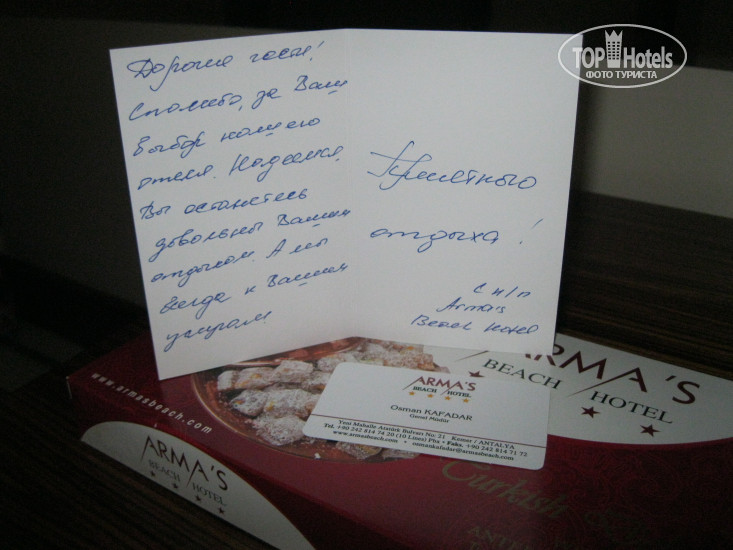 Дорогие гости!
Спасибо, за Ваш
выбор нашего
отеля. Надеемся,
Вы останетесь
довольны Вашим
отдыхом. А мы
всегда к Вашим
услугам
Приятного
отдыха!
с н/п
Arma's
Beach Hotel
TOP Hotels
ФОТО ТУРИСТА
ARMA'S
BEACH HOTEL
www.armasbeach.com
ARMA'S
BEACH HOTEL
Osman KAFADAR
Genel Müdür
Yeni Mahalle Atatürk Bulvarı No: 21 Kemer / ANTALYA
Tel. +90 242 814 74 20 (10 Lines) Pbx • Faks. +90 242 814 71 72
www.armasbeach.com • osmankafadar@armasbeach.com
ARMA'S
BEACH HOTEL
Turkish